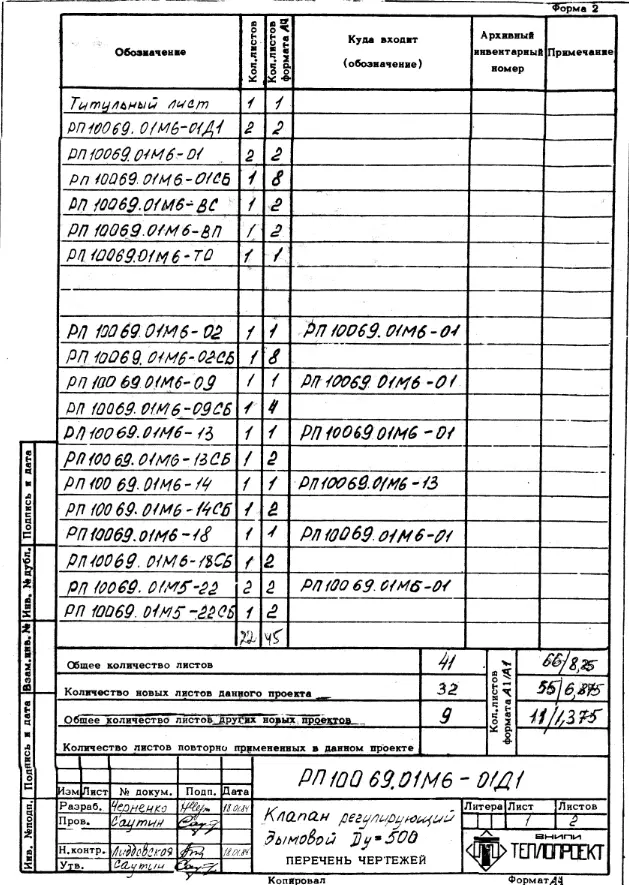 Форма 2
Обозначение Кол.листов Кол.листов формата А4 Куда входит (обозначение) Архивный инвентарный номер Примечание
Титульный лист 1 1
РП10069.01М6-01Д1 2 2
РП10069.01М6-01 2 2
РП 10069.01М6-01СБ 1 8
РП 10069.01М6-ВС 1 2
РП 10069.01М6-ВП 1 2
РП 10069.01М6-ТО 1 1
РП 10069.01М6-02 1 1 РП10069.01М6-01
РП 10069.01М6-02СБ 1 8
РП 10069.01М6-09 1 1 РП10069.01М6-01
РП 10069.01М6-09СБ 1 4
РП10069.01М6-13 1 1 РП10069.01М6-01
РП10069.01М6-13СБ 1 2
РП10069.01М6-14 1 1 РП10069.01М6-13
РП 10069.01М6-14СБ 1 2
РП10069.01М6-18 1 1 РП10069.01М6-01
РП10069.01М6-18СБ 1 2
РП 10069.01М5-22 2 2 РП10069.01М6-01
РП 10069.01М5-22СБ 1 2
22 45
Общее количество листов 41 Кол.листов формата А1/А1 66/8,25
Количество новых листов данного проекта 32 55/6,875
Общее количество листов других новых проектов 9 11/1,375
Количество листов повторно примененных в данном проекте
РП10069.01М6-01Д1
Изм Лист № докум. Подп. Дата
Разраб. Черненко 18.01.84
Пров. Саутин
Н.контр.
Утв. Саутин
Клапан регулирующий
дымовой Ду=500
ПЕРЕЧЕНЬ ЧЕРТЕЖЕЙ
Литера Лист Листов
1 2
ВНИПИ
ТЕПЛОПРОЕКТ
Копировал Формат А4
Подпись и дата
Инв. № дубл.
Взам.инв. №
Подпись и дата
Инв. №подл.